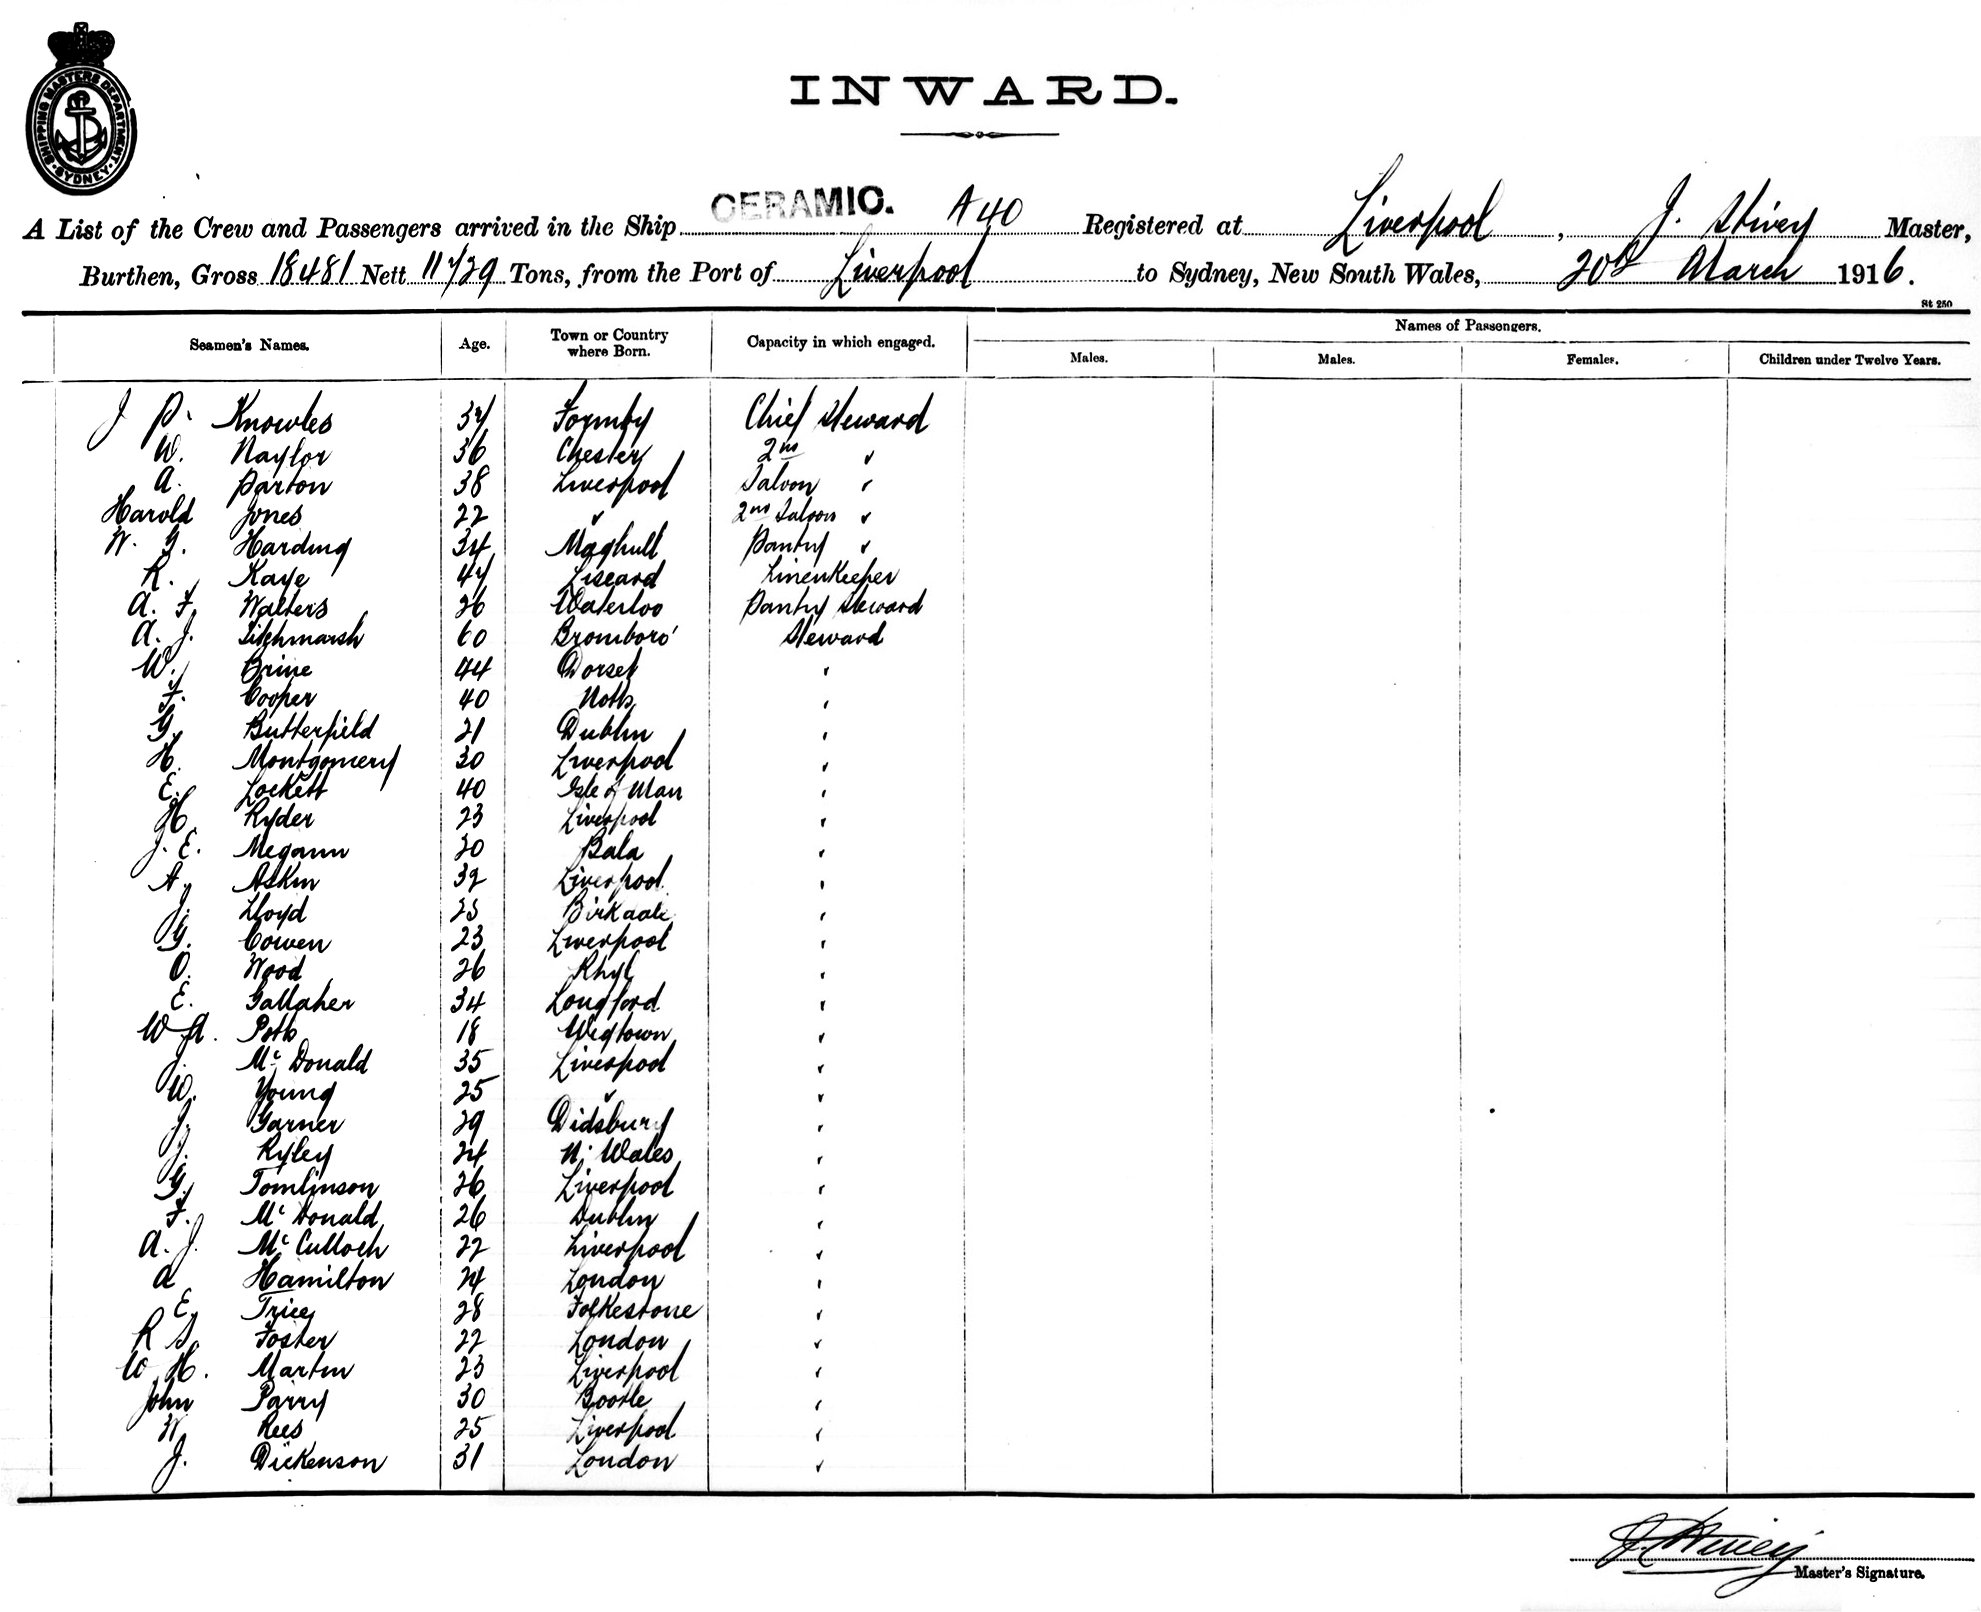 SHIPPING MASTERS DEPARTMENT SYDNEY
INWARD.
A List of the Crew and Passengers arrived in the Ship CERAMIC. A40 Registered at Liverpool, J. Stivey Master,
Burthen, Gross 18481 Nett 11729 Tons, from the Port of Liverpool to Sydney, New South Wales, 20th March 1916.
St 250
Seamen's Names. Age. Town or Country where Born. Capacity in which engaged. Names of Passengers.
Males. Males. Females. Children under Twelve Years.
J P. Knowles 37 Formby Chief Steward
W. Naylor 36 Chester 2nd "
A. Parton 38 Liverpool Saloon "
Harold Jones 22 " 2nd Saloon "
W. G. Harding 34 Maghull Pantry "
R. Kaye 47 Liscard Linenkeeper
A. F. Walters 26 Waterloo Pantry Steward
A. J. Titchmarsh 60 Bromboro' Steward
W. Brine 44 Dorset "
F. Cooper 40 Notts "
G. Butterfield 21 Dublin "
H. Montgomery 30 Liverpool "
E. Lockett 40 Isle of Man "
H. Ryder 23 Liverpool "
J. E. Megann 20 Bala "
A. Askin 32 Liverpool "
J. Lloyd 25 Birkdale "
G. Cowen 23 Liverpool "
O. Wood 26 Rhyl "
E. Gallaher 34 Longford "
W A. Potts 18 Wigtown "
J. Mc Donald 35 Liverpool "
W. Young 25 " "
J. Garner 29 Didsbury "
J. Ryley 24 N. Wales "
G. Tomlinson 26 Liverpool "
F. Mc Donald 26 Dublin "
A. J. Mc Culloch 22 Liverpool "
A Hamilton 24 London "
E. Tricey 28 Folkestone "
R S. Foster 22 London "
W. H. Martin 23 Liverpool "
John Parry 30 Bootle "
W. Rees 25 Liverpool "
J. Dickenson 31 London "
J. Stivey
Master's Signature.